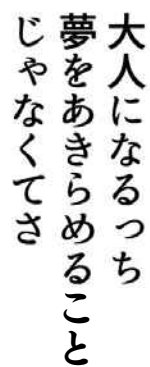 大人になるっち
夢をあきらめること
じゃなくてさ